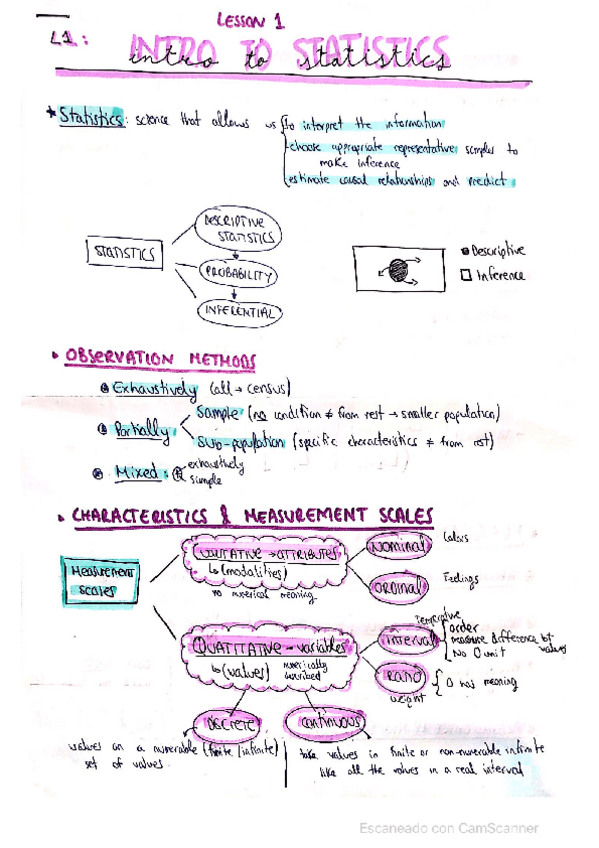 LESSON 1
L1:
INTRO TO STATISTICS
intro to statistics
* Statistics: science that allows us to interpret the information
choose appropriate representative samples to
make inference
estimate causal relationships and predict
STATISTICS
DESCRIPTIVE
STATISTICS
PROBABILITY
INFERENTIAL
Descriptive
Inference
OBSERVATION METHODS
Exhaustively (all → census)
Partially
Sample (no condition ≠ from rest → smaller population)
sub-population (specific characteristics ≠ from rest)
Mixed:
exhaustively
simple
CHARACTERISTICS & MEASUREMENT SCALES
Measurement
scales
→ ATTRIBUTES
↳ (modalities)
no numerical meaning
NOMINAL
Colors
ORDINAL
Feelings
QUATITATIVE - variables
↳ (values)
numerically
described
interval
Temperature
order
measure difference bt
values
No 0 unit
RATIO
weight
0 has meaning
DISCRETE
continuous
values on a numerable (finite/infinite)
set of values
take values in finite or non-numerable infinite
like all the values in a real interval
Escaneado con CamScanner